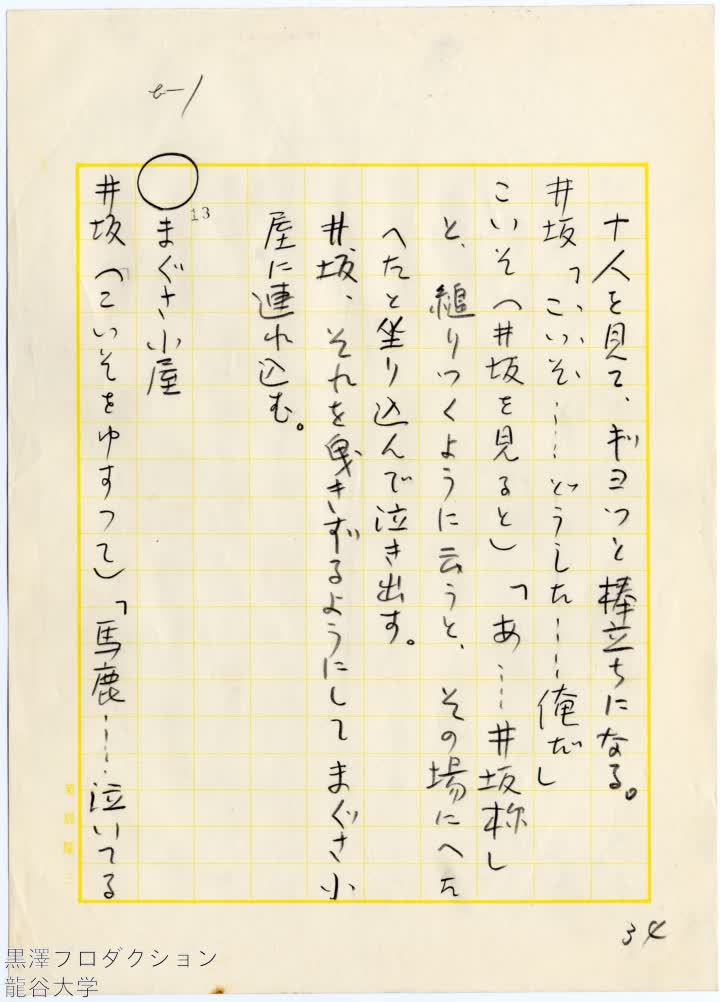 も一1
十人を見て、ギヨツと棒立ちになる。
井坂「こ、こいそ……どうした……俺だ」
こいそ(井坂を見ると)「あ……井坂様」
と、縋りつくように云うと、その場にへた
へたと坐り込んで泣き出す。
井坂、それを曳きずるようにしてまぐさ小
屋に連れ込む。
13
まぐさ小屋
井坂(こいそをゆすつて)「馬鹿……泣いてる
34
黒澤プロダクション
龍谷大学